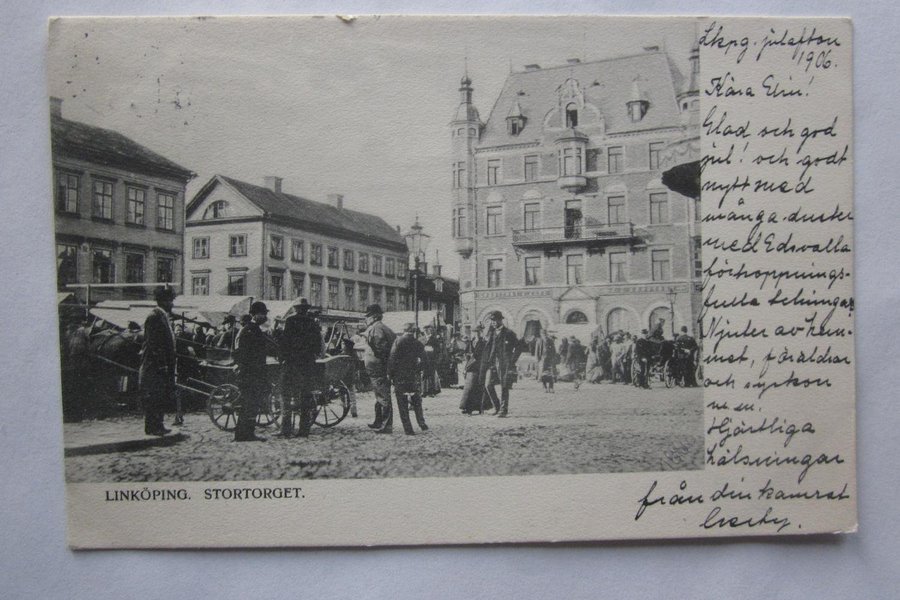 LINKÖPING. STORTORGET.
Lkpg. julafton
1906.
Kära Elin!
Glad och god
jul! och godt
nytt med
många duster
med Edsvalla
förhoppnings-
fulla telningar.
Njuter av hem-
met, föräldrar
och syskon
nu.
Hjärtliga
hälsningar
från din kamrat